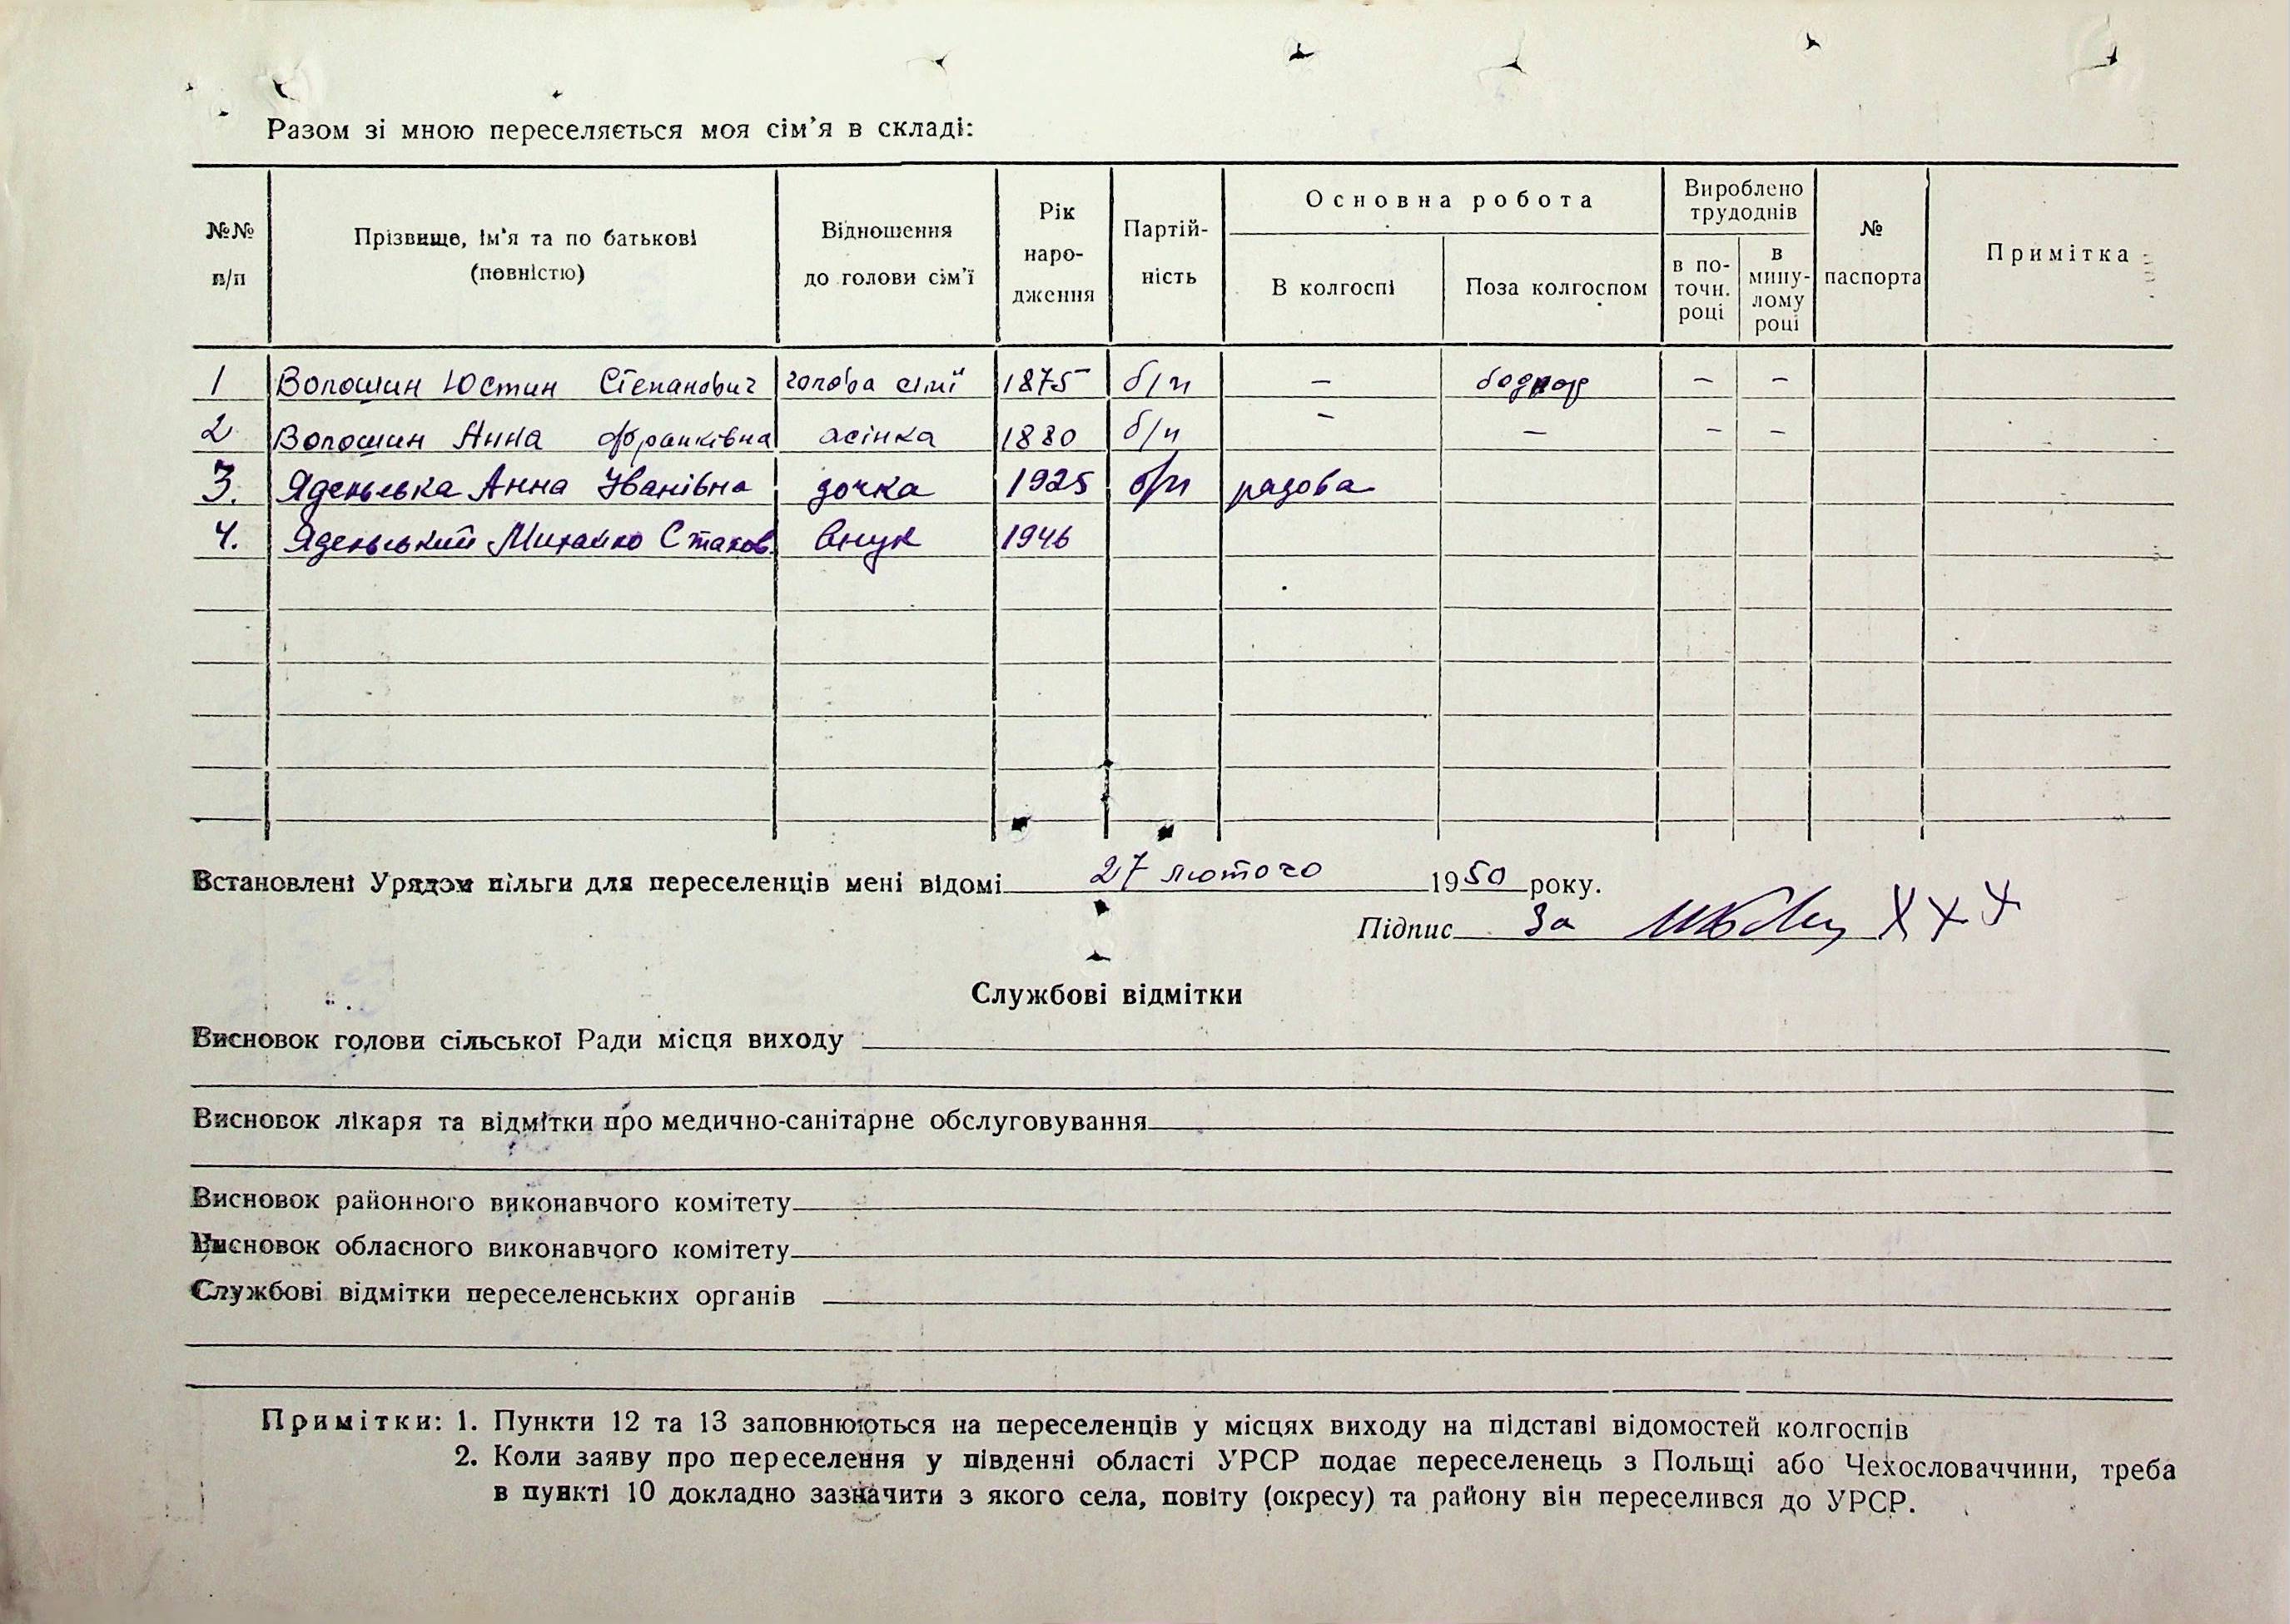 Разом зі мною переселяється моя сім'я в складі:
№№ п/п
Прізвище, ім'я та по батькові (повністю)
Відношення до голови сім'ї
Рік народження
Партійність
Основна робота
В колгоспі
Поза колгоспом
Вироблено трудоднів
в поточн. році
в минулому році
№ паспорта
Примітка
1 Волошин Юстин Степанович голова сімї 1875 б/п – – –
2 Волошин Анна Франківна жінка 1880 б/п – – – –
3. Яденська Анна Іванівна дочка 1925 б/п рядова
4. Яденський Михайло Стахов. внук 1946
Встановлені Урядом пільги для переселенців мені відомі 27 лютого 1950 року.
Підпис За Х Х Х
Службові відмітки
Висновок голови сільської Ради місця виходу
Висновок лікаря та відмітки про медично-санітарне обслуговування
Висновок районного виконавчого комітету
Висновок обласного виконавчого комітету
Службові відмітки переселенських органів
Примітки: 1. Пункти 12 та 13 заповнюються на переселенців у місцях виходу на підставі відомостей колгоспів
2. Коли заяву про переселення у південні області УРСР подає переселенець з Польщі або Чехословаччини, треба
в пункті 10 докладно зазначити з якого села, повіту (окресу) та району він переселився до УРСР.